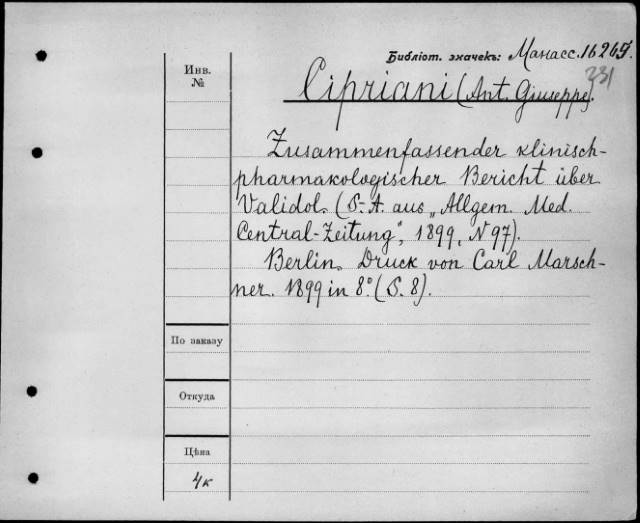 Библіот. значекъ: Манасс. 16267.
231
Инв.
№
Cipriani (Ant. Giuseppe).
Zusammenfassender klinisch-
pharmakologischer Bericht über
Validol. (S.-A. aus „Allgem. Med.
Central-Zeitung", 1899, N 97).
Berlin. Druck von Carl Marsch-
ner. 1899 in 8° (S. 8).
По заказу
Откуда
Цѣна
4к